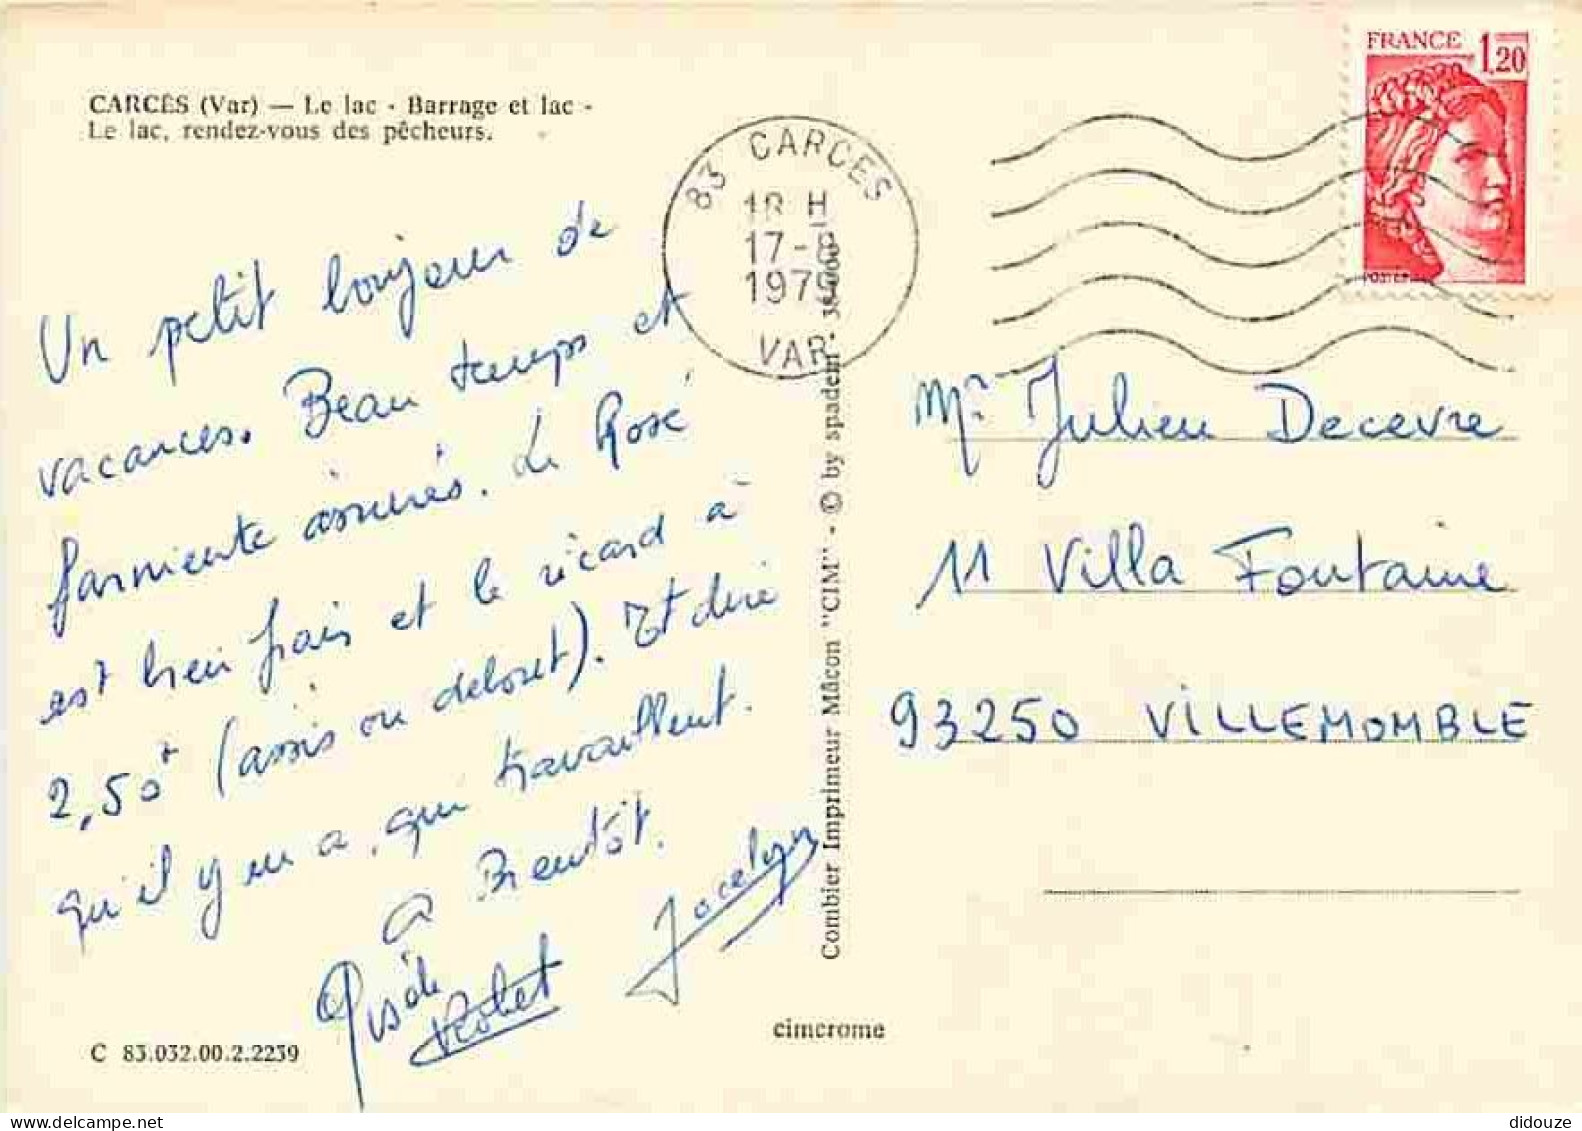 CARCÈS (Var) — Le lac - Barrage et lac -
Le lac, rendez-vous des pêcheurs.
Un petit bonjour de
vacances. Beau temps et
farniente assurés. Le Rosé
est bien frais et le ricard à
2,50 (assis ou debout). Et dire
qu'il y en a, qui travaillent.
A Bientôt.
Gisèle
Robert
Jocelyn
C 83.032.00.2.2239
83 CARCES
18 H
17-
197
VAR
Combier Imprimeur Mâcon "CIM" - © by spadem -
cimcrome
FRANCE 1,20
POSTES
Mr. Julien Decevre
11 Villa Fontaine
93250 VILLEMOMBLE
delcampe.net
didouze